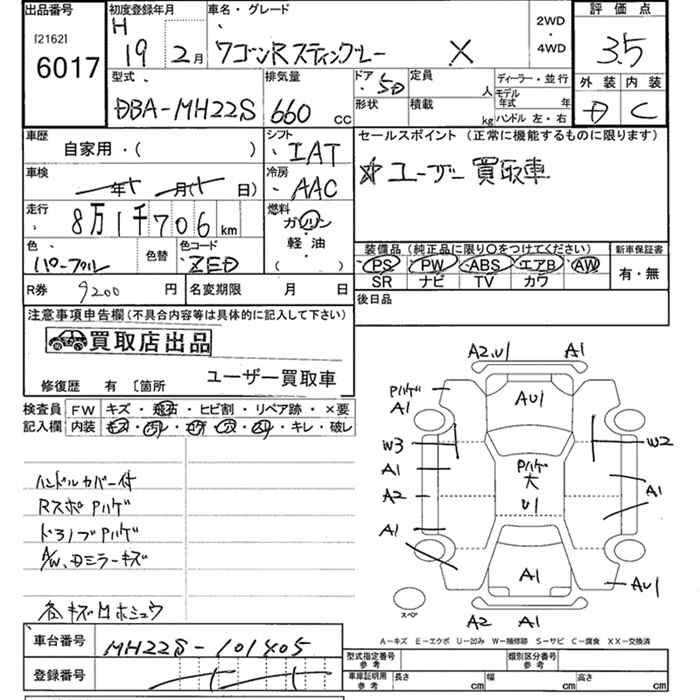 出品番号
[2162]
6017
初度登録年月
H 19 2月
車名・グレード
ワゴンRスティングレー X
2WD
・
4WD
評価点
3.5
外装 内装
D C
型式
DBA-MH22S
排気量
660 cc
ドア
5D
定員
人
形状
積載
kg
ディーラー・並行
モデル年式 年
ハンドル 左・右
車歴
自家用・( )
シフト
IAT
車検
年 月( 日)
冷房
AAC
走行
8万1千706km
燃料
ガソリン
軽油
( )
色
パープル
色替
色コード
ZED
R券 9200 円
名変期限 月 日
セールスポイント (正常に機能するものに限ります)
ユーザー買取車
装備品 (純正品に限り○をつけてください)
PS PW ABS エアB AW
SR ナビ TV カワ
新車保証書
有・無
後日品
注意事項申告欄(不具合内容等は具体的に記入して下さい)
買取店出品
修復歴 有 〔箇所 ユーザー買取車
検査員 FW キズ・飛石・ヒビ割・リペア跡・×要
記入欄 内装 ・ ・ ・ ・ ・キレ・破レ
ハンドルカバー付
Rスポ Pハゲ
ドアノブPハゲ
A/W、Dミラーキズ
各キズ凹ホシュウ
A2,U1 A1
Pハゲ
A1
AU1
W3
W2
A1
A2
A1
Pハゲ
大
U1
A1
A1
AU1
スペア
A2 A1
A－キズ E－エクボ U－凹み W－補修跡 S－サビ C－腐食 XX－交換済
車台番号 MH22S-101405
登録番号
型式指定番号
参考
類別区分番号
参考
車庫証明用
参考
長さ cm
幅 cm
高さ cm